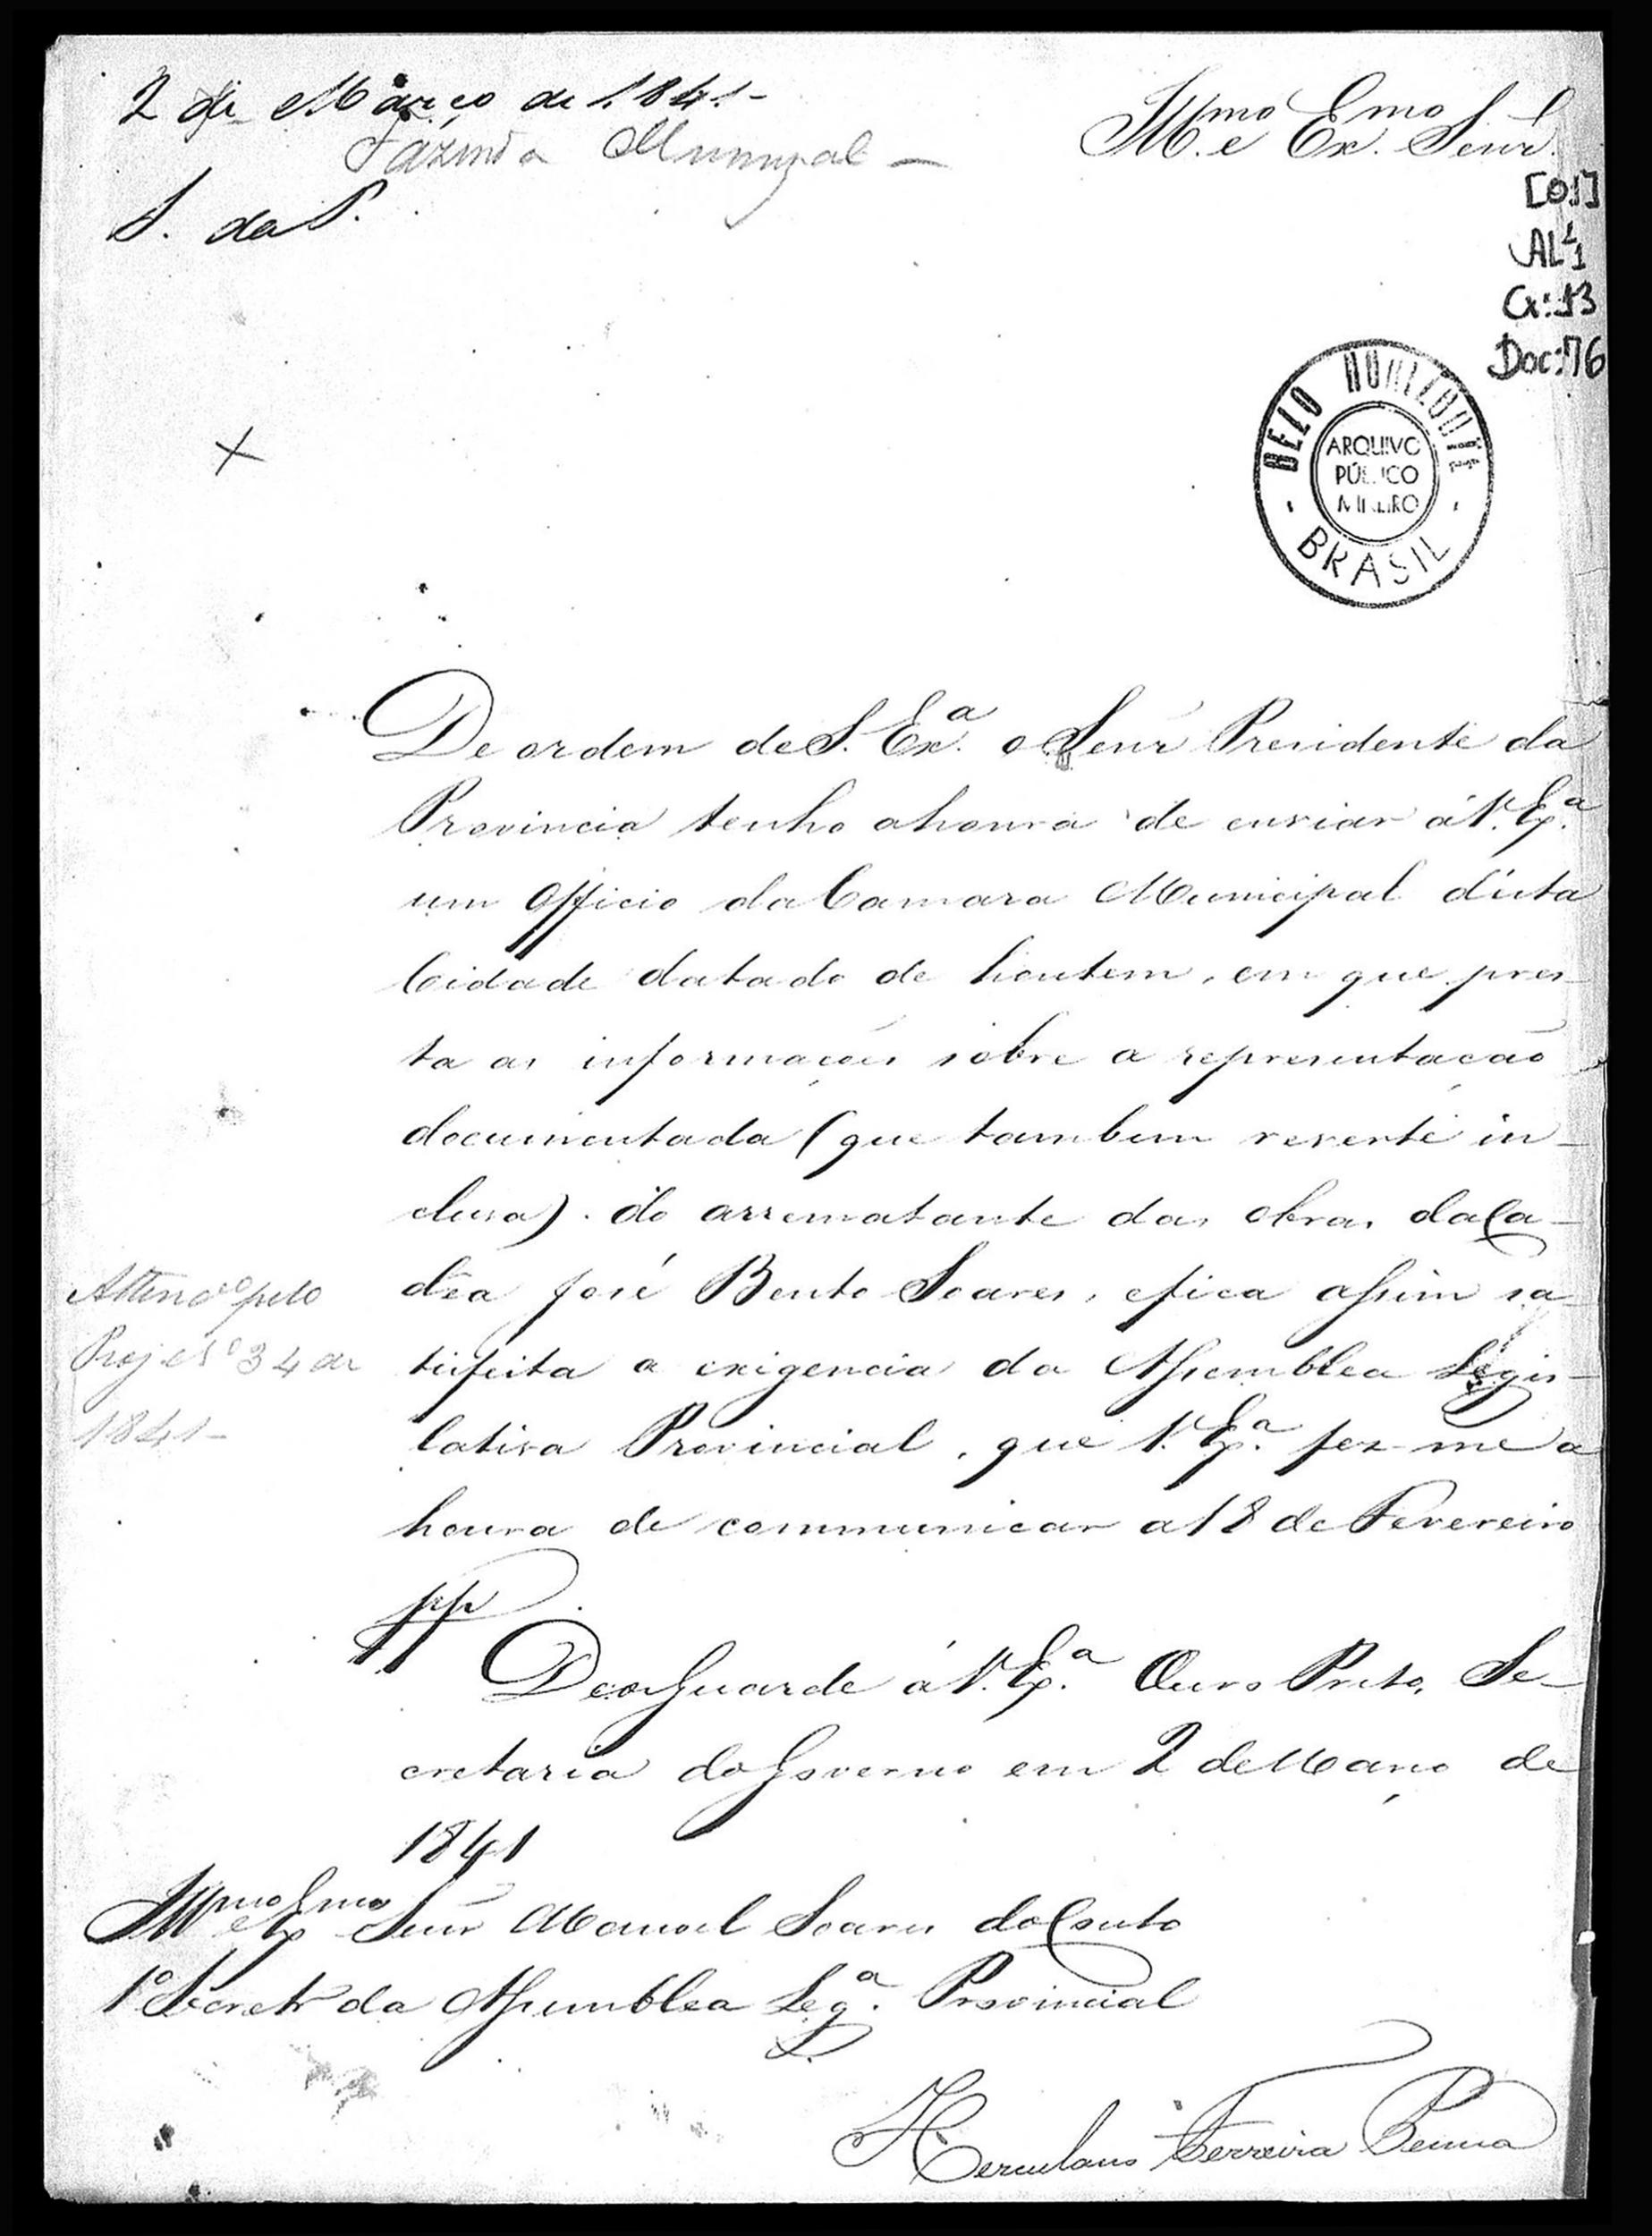 2 de Março de 1841-
Fazenda Municipal -
S. da P.
Illmo. e Exmo. Senr.
[01]
AL 1
Cx: 13
Doc: 76
BELO HORIZONTE
ARQUIVO
PÚBLICO
MINEIRO
BRASIL
De ordem de S. Exa. o Senr Presidente da
Provincia tenho a honra de enviar á V. Exa.
um Officio da Camara Municipal d'esta
Cidade datado de hontem, em que pres-
ta as informações sobre a representação
documentada (que tambem reverte in-
clusa) do arrematante das obras da Ca-
dêa José Bento Soares, e fica assim sa-
tisfeita a exigencia da Assemblea Legis-
lativa Provincial, que V. Exa. fez-me a
honra de communicar a 18 de Fevereiro
pp.
Attendo. pelo
Proj. No 34 de
1841-
Deos Guarde á V. Exa. Ouro Preto, Se-
cretaria do Governo em 2 de Março de
1841
Illmo e Exmo Senr Manoel Soares do Couto
1º Secretr da Assemblea Lega. Provincial
Herculano Ferreira Penna